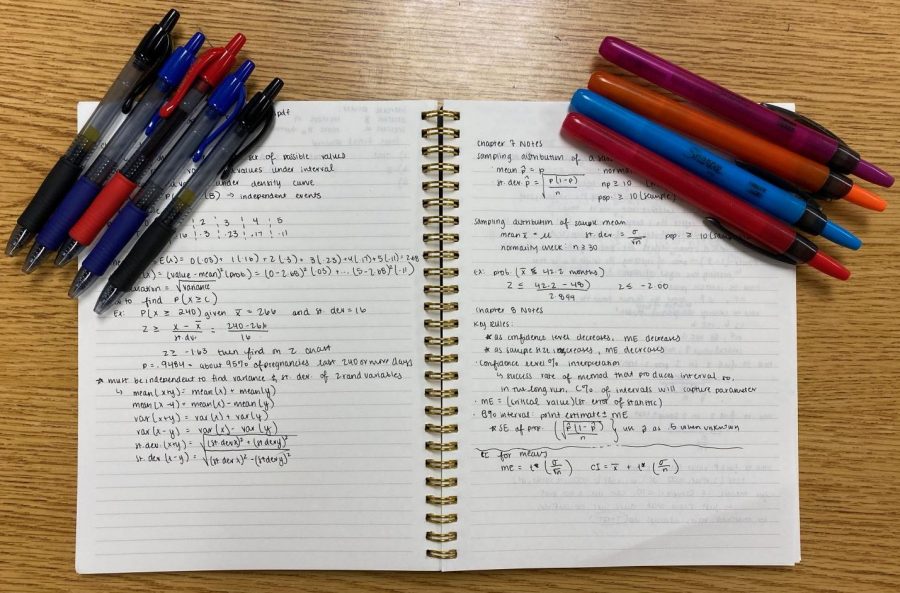 pdf
set of possible values
values under interval
under density curve
(B) → independent events
1 2 3 4 5
.16 .3 .23 .17 .11
E(x) = 0(.03) + 1(.16) + 2(.3) + 3(.23) + 4(.17) + 5(.11) =
(x) = (value - mean)² (prob) = (0-2.68)² (.03) + ... (5-2.68)² (.11)
= √variance
to find P(x ≥ c)
Ex: P(x ≥ 240) given x̄ = 266 and st. dev = 16
z ≥ x - x̄ / st. dev = 240-266 / 16
z ≥ -1.63 then find on z chart
p = .9484 = about 95% of pregnancies last 240 or more days
* must be independent to find variance & st. dev. of 2 rand variables
↳ mean(x+y) = mean(x) + mean(y)
mean(x-y) = mean(x) - mean(y)
var(x+y) = var(x) + var(y)
var(x-y) = var(x) - var(y)
st. dev. (x+y) = √(st dev x)² + (st dev y)²
st. dev (x-y) = √(st dev x)² - (st dev y)²
Chapter 7 Notes
sampling distribution of a
mean p̂ = p
st. dev p̂ = √p(1-p) / n np ≥ 10
pop. ≥ 10(sample)
sampling distribution of sample mean
mean x̄ = μ st. dev = σ/√n pop ≥ 10(sample
normality check n ≥ 30
Ex: prob (x̄ ≤ 42.2 months)
z ≤ 42.2 - 48 / 2.899 z ≤ -2.00
Chapter 8 Notes
Key Rules:
* as confidence level decreases, ME decreases
* as sample size increases, ME decreases
· confidence level % interpretation
↳ success rate of method that produces interval
in the long run, C% of intervals will capture parameter
· ME = (critical value)(st. error of statistic)
interval: point estimate ± ME
* SE of prop. (√p̂(1-p̂) / n) } use p̂ as .5 when unknown
CI for means
ME = t* (σ/√n) CI = x̄ ± t* (σ/√n)
Sharpie